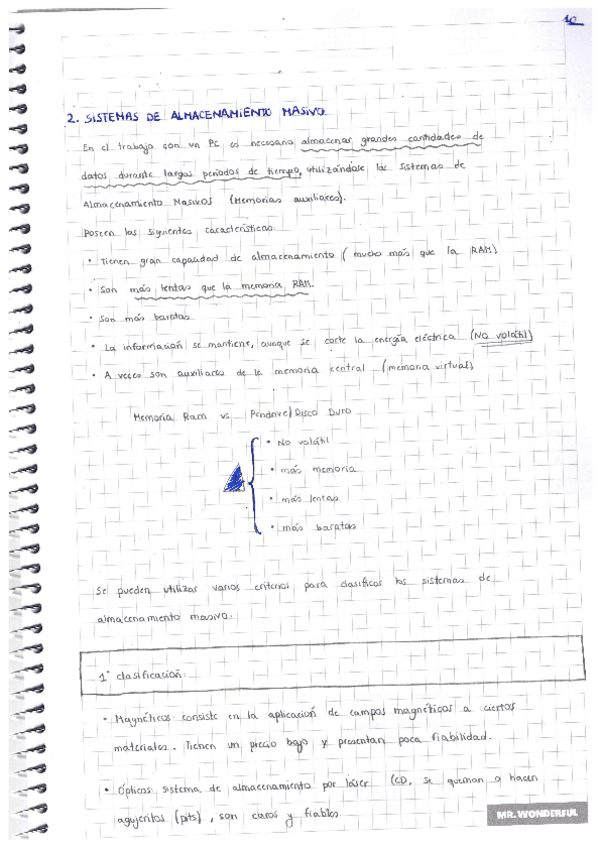 10
2. SISTEMAS DE ALMACENAMIENTO MASIVO.
En el trabajo con un PC es necesario almacenar grandes cantidades de
datos durante largas periodos de tiempo, utilizándose los sistemas de
Almacenamiento Masivos (Memorias auxiliares).
Poseen las siguientes características:
• Tienen gran capacidad de almacenamiento (mucho más que la RAM)
• Son más lentas que la memoria RAM.
• Son más baratas
• La información se mantiene, aunque se corte la energía eléctrica (NO volátil)
• A veces son auxiliares de la memoria central (memoria virtual)
Memoria Ram vs Pendrive/Disco Duro
• No volátil
• más memoria
• más lentas
• más baratas
Se pueden utilizar varios criterios para clasificar los sistemas de
almacenamiento masivo.
1ª clasificación:
• Magnéticos: consiste en la aplicación de campos magnéticos a ciertos
materiales. Tienen un precio bajo y presentan poca fiabilidad.
• Ópticos: sistema de almacenamiento por láser (CD, se queman o hacen
agujeritos (pits), son caros y fiables
MR. WONDERFUL